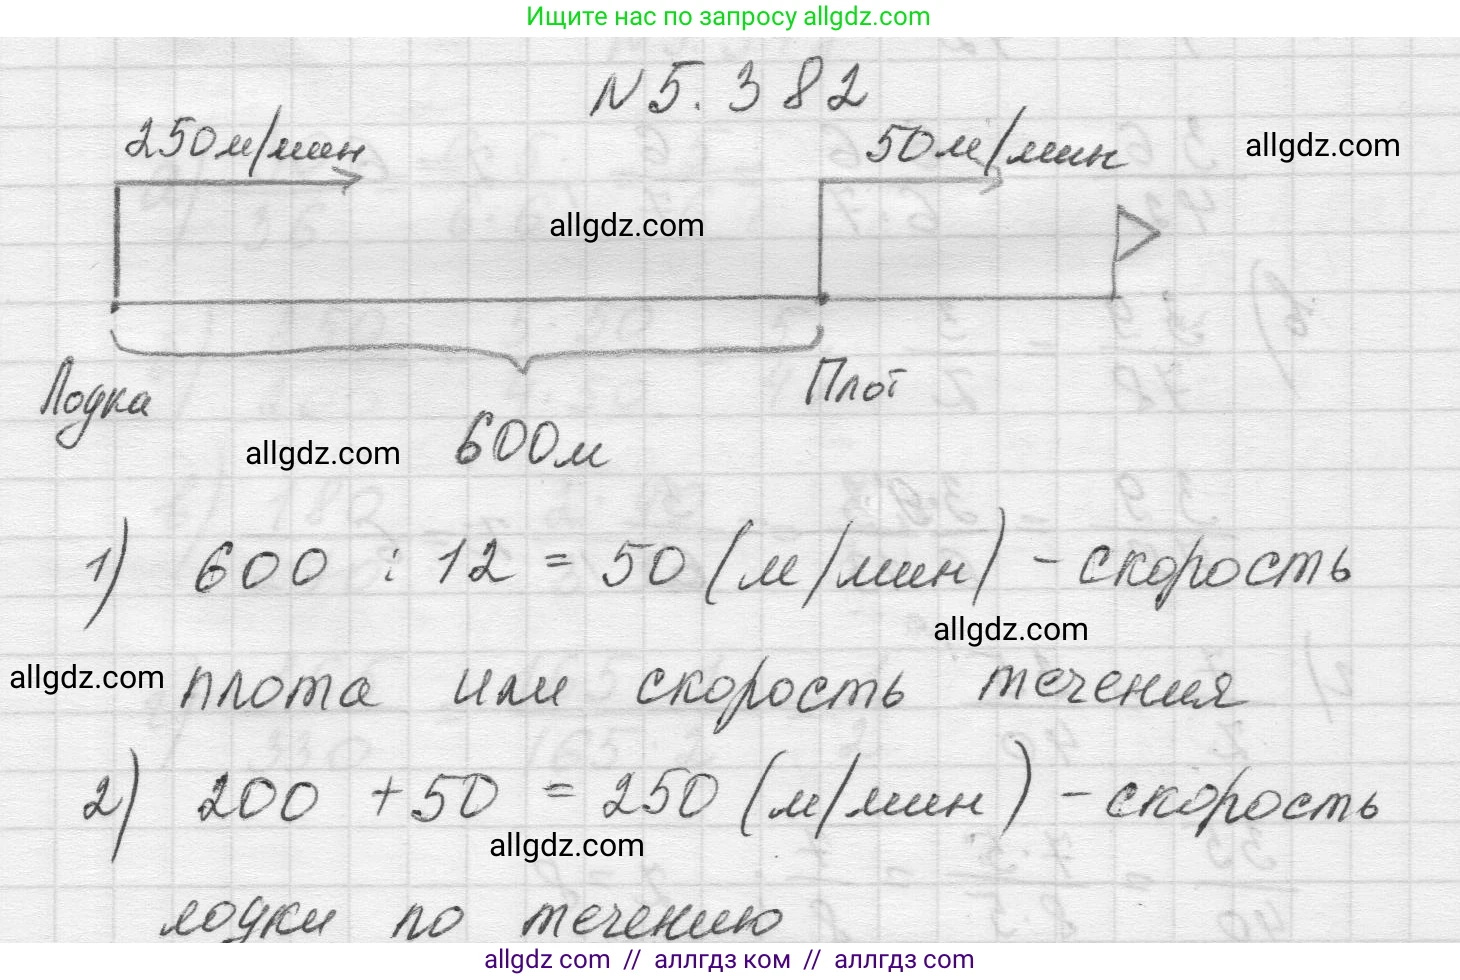 Ищите нас по запросу allgdz.com
N 5.382
250м/мин
50м/мин
allgdz.com
allgdz.com
Лодка
Плот
allgdz.com
600м
1) 600 : 12 = 50 (м/мин) - скорость
allgdz.com
allgdz.com
плота или скорость течения
2) 200 + 50 = 250 (м/мин) - скорость
allgdz.com
лодки по течению
allgdz com // аллгдз ком // аллгдз com